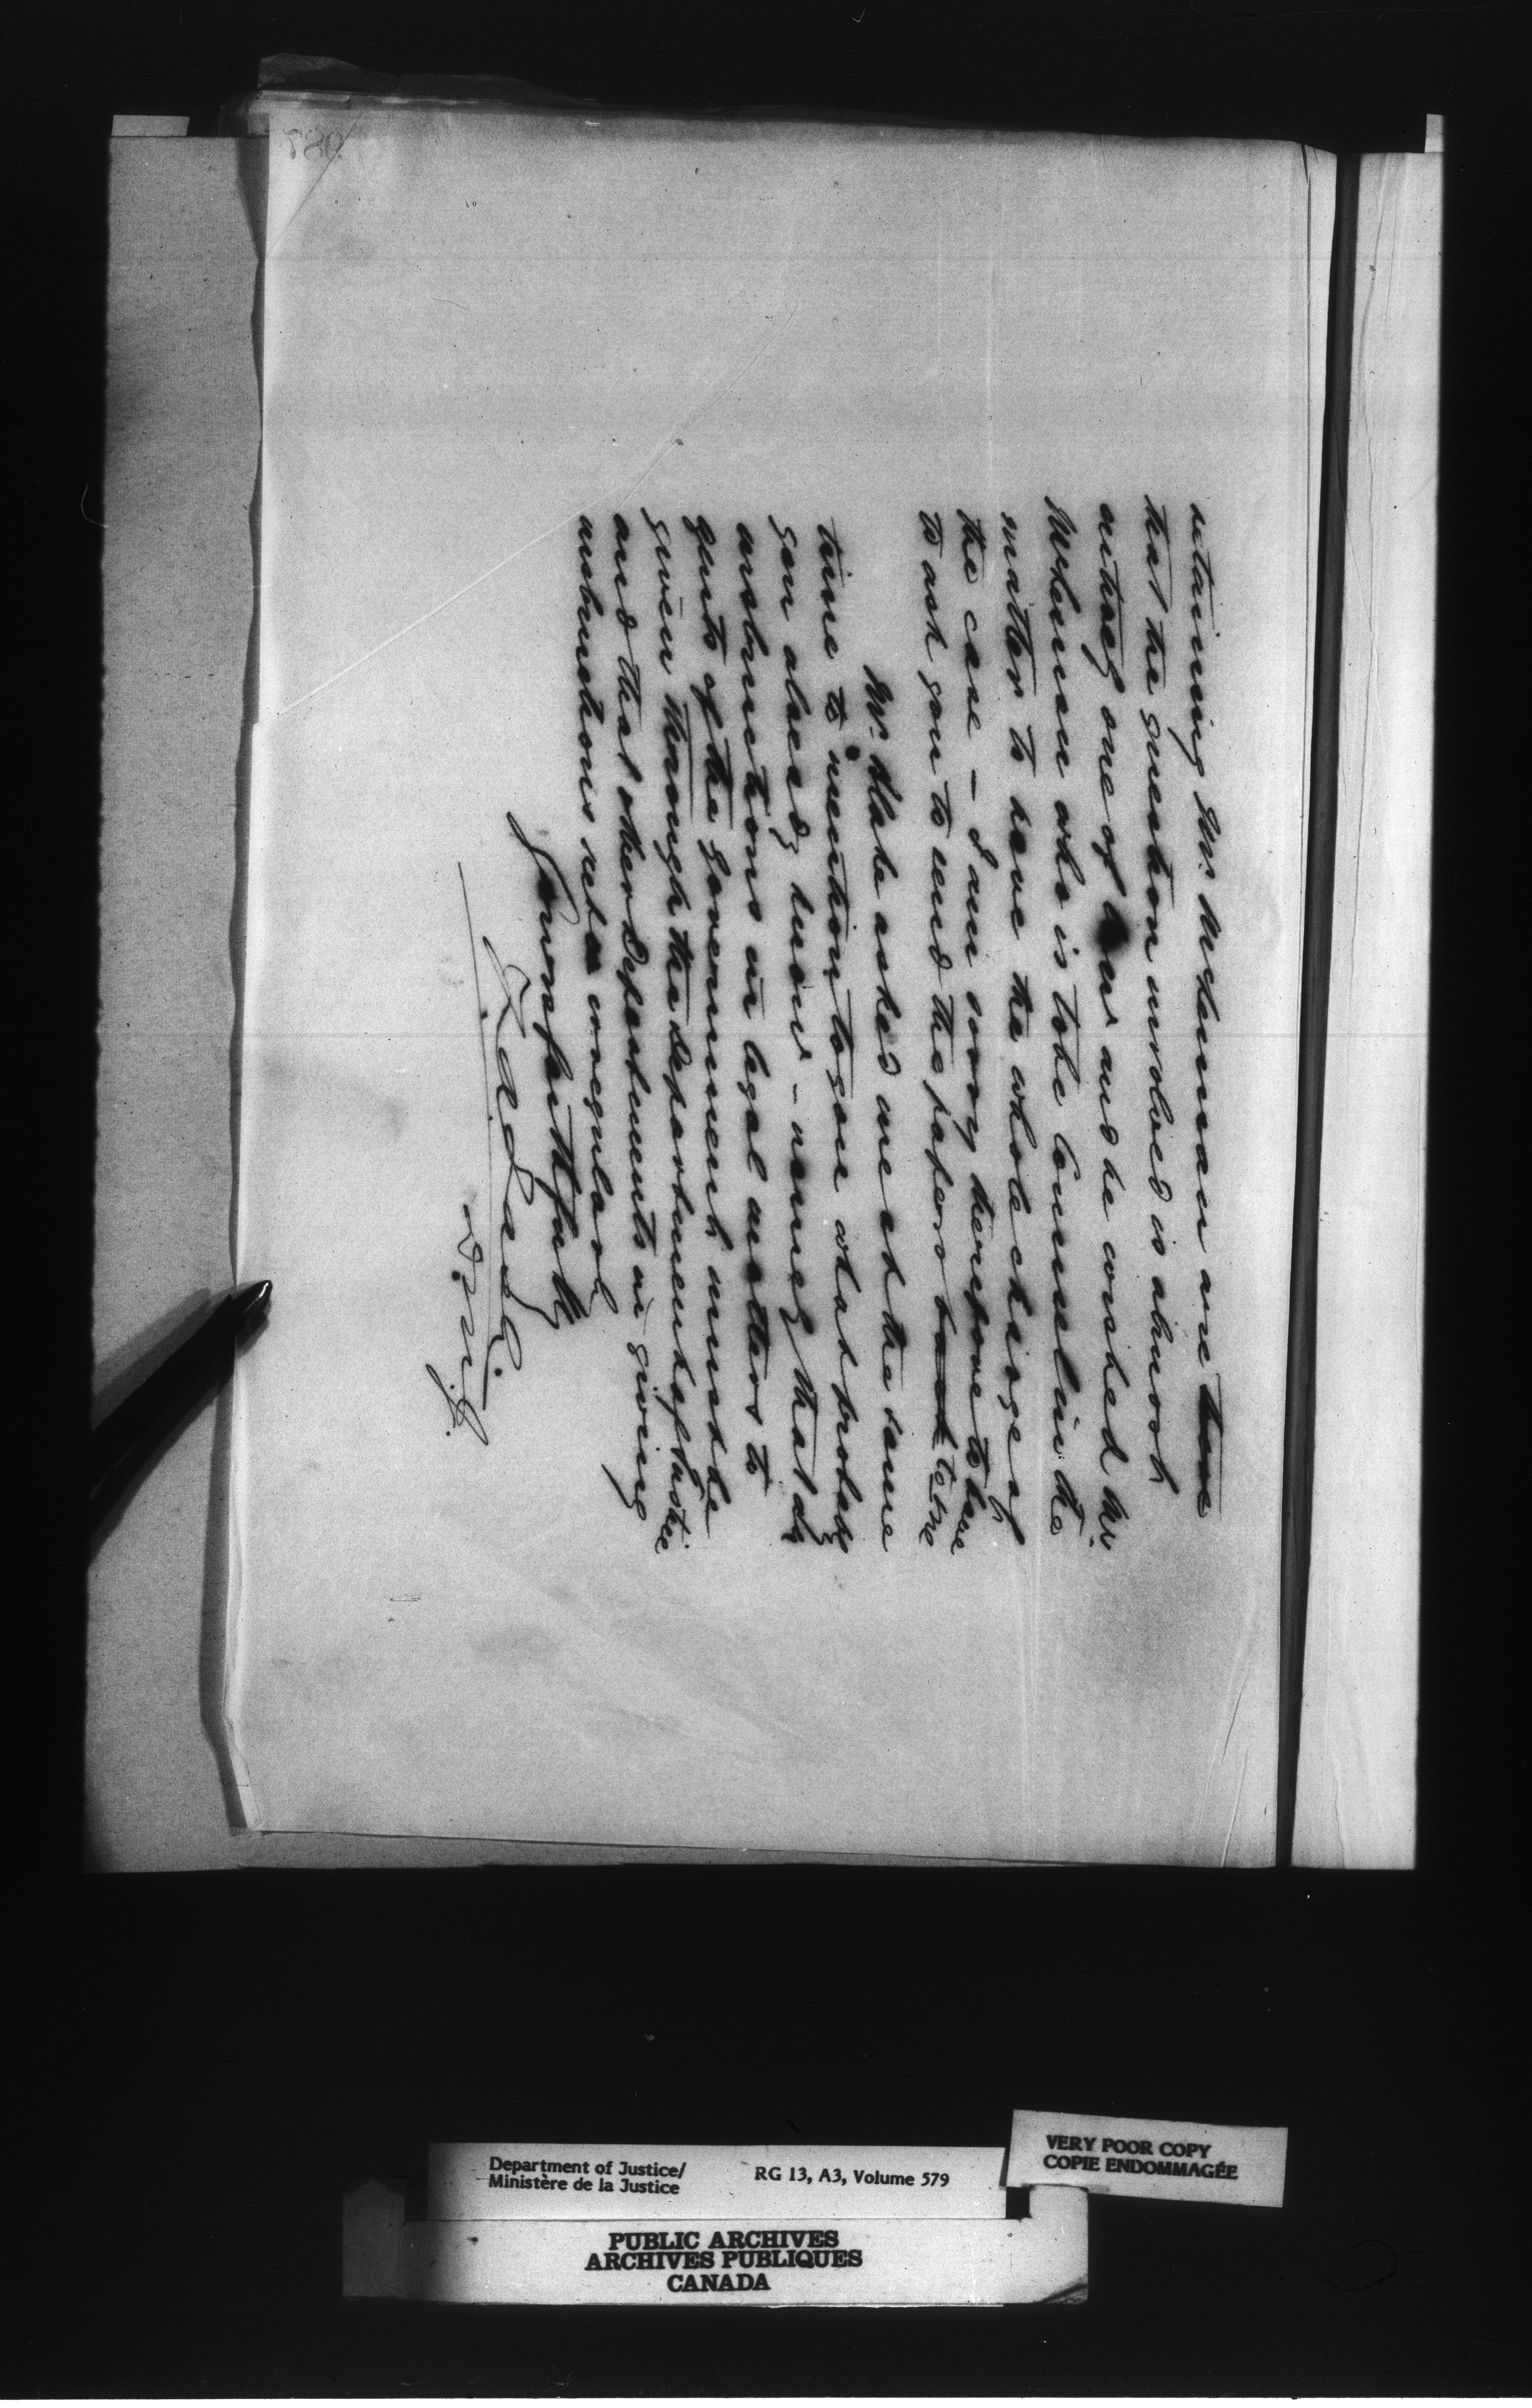 retaining Mr. McLennan are
that the question involved is almost
entirely one of law and he wished Mr.
McLennan who is to be Counsel in the
matter to have the whole charge of
the case – I am sorry therefore to have
to ask you to send the papers back to me
Mr. Blake asked me at the same
time to mention to you what probably
you already know – namely that all
instructions in legal matters to
gents of the Government must be
given through the Department of Justice
and that other Departments in giving
instructions irregularly
Yours faithfully
D.M.J.
Department of Justice/
Ministère de la Justice
RG 13, A3, Volume 579
VERY POOR COPY
COPIE ENDOMMAGÉE
PUBLIC ARCHIVES
ARCHIVES PUBLIQUES
CANADA